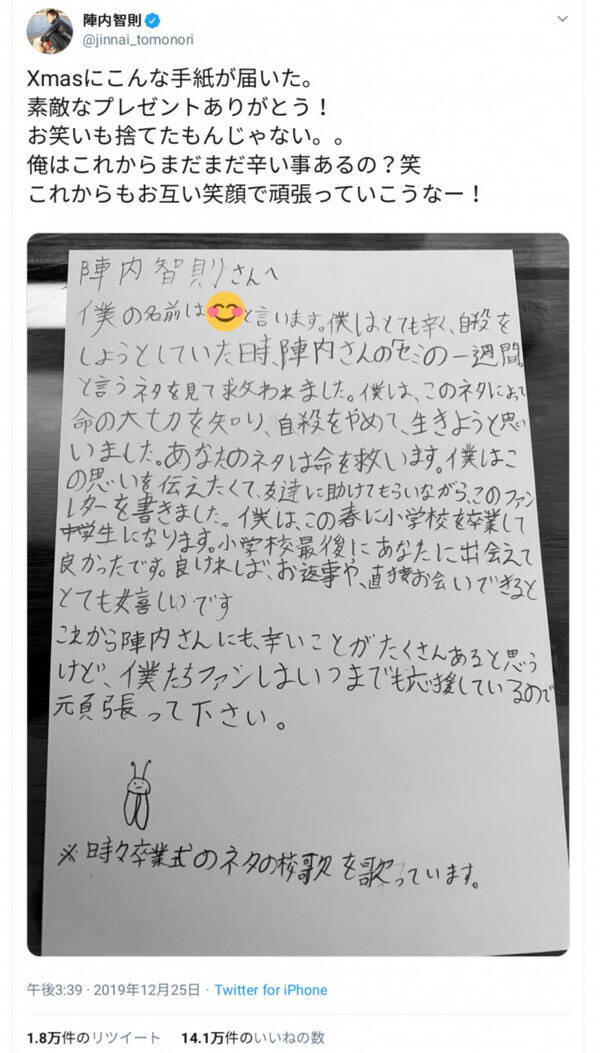 陣内智則
@jinnai_tomonori
Xmasにこんな手紙が届いた。
素敵なプレゼントありがとう！
お笑いも捨てたもんじゃない。。
俺はこれからまだまだ辛い事あるの？笑
これからもお互い笑顔で頑張っていこうなー！
陣内智則さんへ
僕の名前は😊と言います。僕はとても辛く、自殺を
しようとしていた時、陣内さんの「セミの一週間」
と言うネタを見て救われました。僕は、このネタによって
命の大切を知り、自殺をやめて、生きようと思
いました。あなたのネタは命を救います。僕はこ
の思いを伝えたくて、友達に助けてもらいながら、このファン
レターを書きました。僕は、この春に小学校を卒業して
中学生になります。小学校最後にあなたに出会えて
良かったです。良ければ、お返事や、直接お会いできると
とても嬉しいです
これから陣内さんにも、辛いことがたくさんあると思う
けど、僕たちファンはいつまでも応援しているので
頑張って下さい。
※時々卒業式のネタの校歌を歌っています。
午後3:39 · 2019年12月25日 · Twitter for iPhone
1.8万件のリツイート 14.1万件のいいねの数